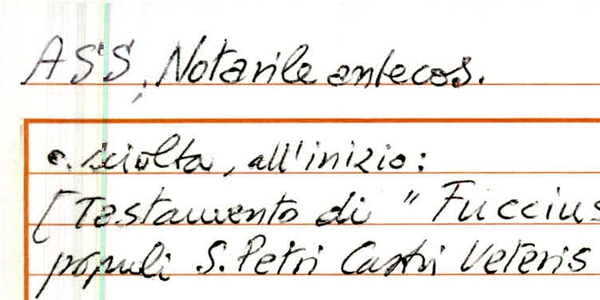 ASS, Notarile antecos.
c. sciolta, all'inizio:
[Testamento di "Fuccius
populi S. Petri Castri Veteris